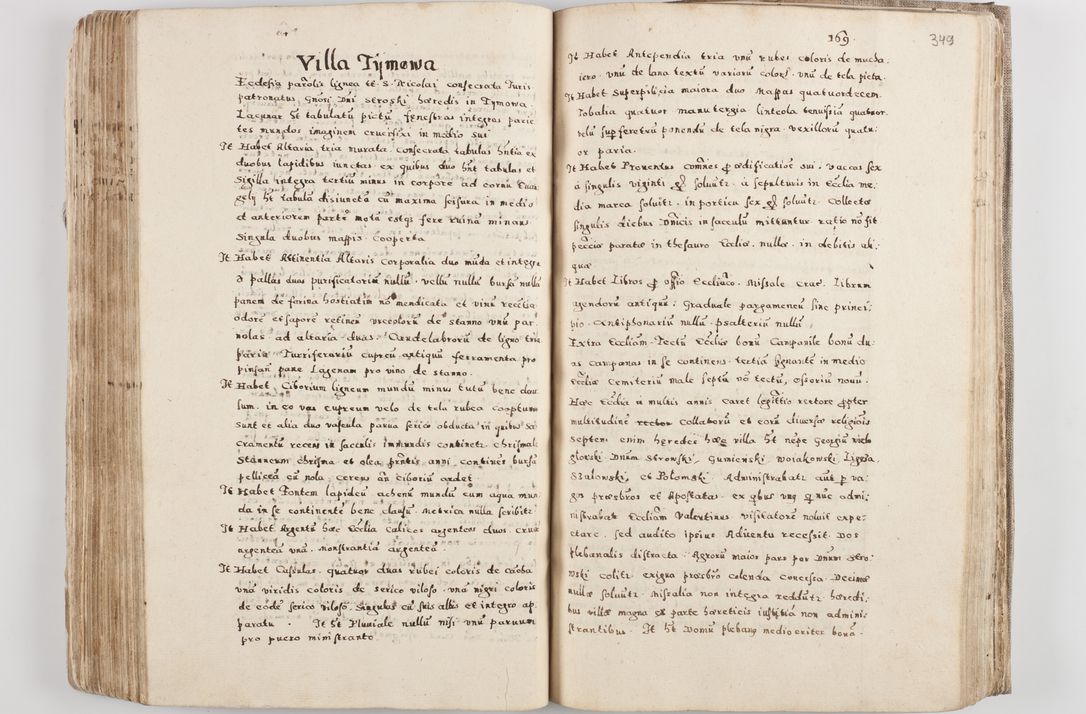 Villa Tymowa
Ecclesia parolis lignea tt. S. Nicolai consecrata Juris
patronatus Gnosi Dni Stroski hæredis in Tymowa.
Lacunar et tabulatū pictū, fenestras integras parie
tes mundos imaginem crucifixi in medio sui
It Habet Altaria tria murata consecrata tabulas hntia ex
duobus lapidibus iunctas ex quibus duo hnt tabulas et
Sigilla integra tertiū minus in corpore ad cornu Euā
gely ht tabula disiuncta cū maxima scisura in medio
et anteriorem parte mota estq fere ruina minans
Singula duobus mappis cooperta
It Habet Attinentia Altaris Corporalia duo mūda et integra
pallas duas purificatoriū nullū. vellū nullū bursā nullā
panem de farina hostiatim nō mendicata et vinū
odore et sapore retinen urceolorū de stanno unū par
nolas ad altaria duas. Candelabrorū de ligno tria
paria Turriferariū cupreū antiquū ferramenta pro
pinsan pane Lagenam pro vino de stanno.
It Habet Ciborium ligneum mundū minus tutū bene clau
sum. in eo vas cupreum velo de tela rubea coopertum
sunt et alia duo vascula parva serico obducta in quibus Sa
cramentū recens in sacculis immundis continetr Chrismale
Stanneum Chrisma et olea prntis anni continens bursa
pellicea cū nola, cereus an ciboriū ardet
It Habet Fontem lapideū ahenū mundū cum aqua mun
da in se continente bene clausū Metrica nulla scribitr
It Habet Argentū hæc Ecclia calices argenteos duos. cruce
argentea una. monstrantia argentea
It Habet Casulas quatuor duas rubei coloris de
una viridis coloris de serico viloso. una nigri coloris
de eode serico viloso. Singulas cū suis albis et integro ap
paratu. It ht Pluviale nullū nisi unū parvum
pro puero ministranto
169.
349
It Habet Antependia tria unū rubei coloris de mucha
iero unū de lana textū variorū color. unū de tela picta.
It Habet Superpilicia maiora duo Mappas quatuordecem
Tobalia quatuor manutergia linteola tenuissia quatuor.
velū sup feretrū ponendū de tela nigra. vexillorū quatu
or paria.
It Habet Proventus comnes ædificatioē sui. vaccas sex
a singulis viginti solvūtr. a sepulturis in Ecclia me
dia marca solvitr. in porticu sex solvūtr Collecta
singulis diebus Dnicis in sacculū mittuntur ratio nō fit
pecciæ paratæ in thesauro Eccliæ nullæ. in debitis ali
quæ
It Habet Libros officio Eccliaco. Missale Crac. Librum
agendorū antiqū. Graduale pargameneū sine princi
pio Antiphonariū nullū. psalteriū nullū
Extra Eccliam. Tectū Eccliæ bonū Campanile bonū du
as campanas in se continens. tertiā signante in medio
Eccliæ Cemiteriū male septū nō tectū, ossoriū novū.
Hæc Ecclia à multis annis caret legittio rectore propter
multitudine rector collatorū et eorū diversæ religiois
septem enim heredes hæc villa ht nepe Georgiū
glorski Dnūm Stronski, Gumienski Wojakowski
et Polomski Administrabatr aut p va
gos præsbros et Apostatas ex qbus unq qui nuc admi
nistrabat Eccliam Valentinus visitatore noluit expe
ctare. sed audito ipsius Adventu recessit Dos
plebanalis distracta Agrorū maior pars per Dnūm Stro
wski colitr exigua præsbro colenda concessa Decimæ
nullæ solvūtr. Missalia non integra reddūtr hæredi
bus villæ magna ex parte hæreticis iustitiā non admini
strantibus. It ht Domū plebany mediocriter bonā.